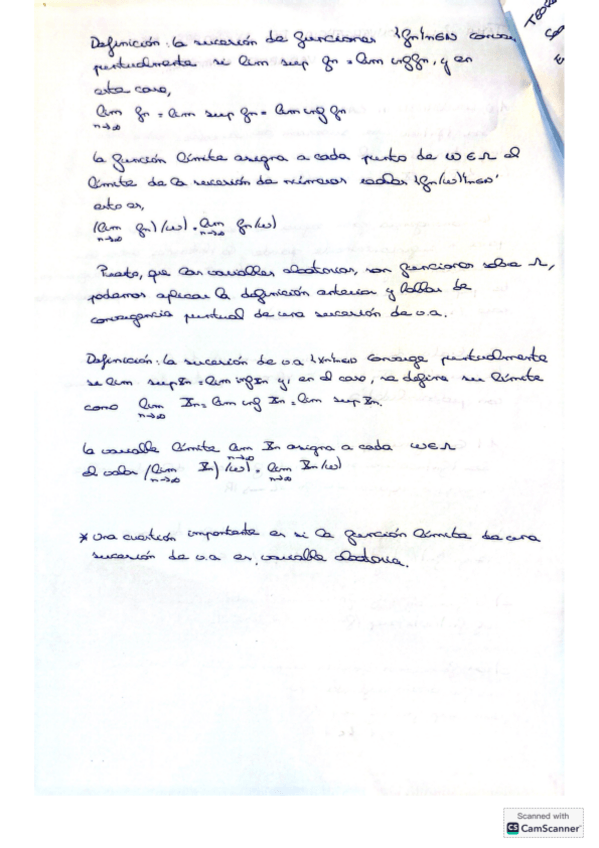 Definición: la sucesión de funciones {fn}n∈N conve
puntualmente si lim sup fn = lim inf fn, y en
este caso,
lim fn = lim sup fn = lim inf fn
n→∞
la función límite asigna a cada punto de w∈Ω el
límite de la sucesión de números reales {fn(w)}n∈N,
esto es,
(lim fn)(w) = lim fn(w)
n→∞ n→∞
Puesto, que las variables aleatorias, son funciones sobre Ω,
podemos aplicar la definición anterior y hablar de
convergencia puntual de una sucesión de v.a.
Definición: la sucesión de v.a {Xn}n∈N converge puntualmente
si lim sup Xn = lim inf Xn y, en el caso, se define su límite
como lim Xn = lim inf Xn = lim sup Xn.
n→∞
la variable límite lim Xn asigna a cada w∈Ω
n→∞
el valor (lim Xn)(w) = lim Xn(w)
n→∞ n→∞
* Una cuestión importante es si la función límite de una
sucesión de v.a es, variable aleatoria.
TEO
E
Scanned with
CS CamScanner